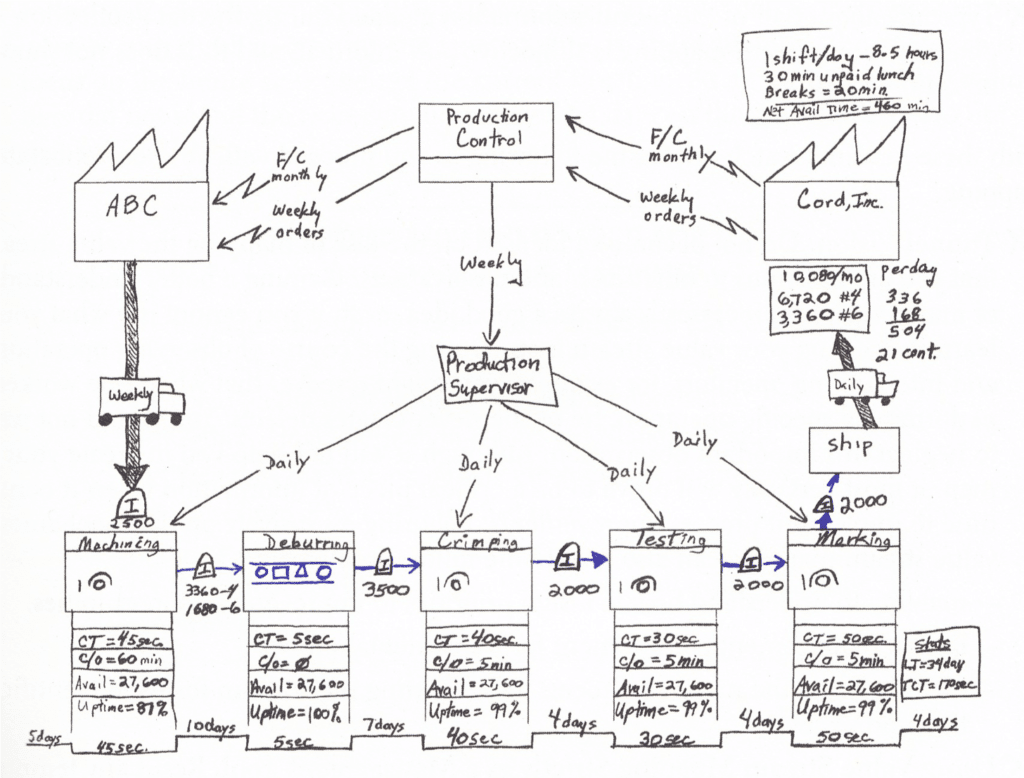 1 shift/day - 8.5 hours
30 min unpaid lunch
Breaks = 20 min.
Net Avail Time = 460 min
Production
Control
F/C
monthly
Weekly
orders
F/C
monthly
Weekly
orders
ABC
Cord, Inc.
Weekly
10,080/mo
6,720 #4
3,360 #6
per day
336
168
504
21 cont.
Production
Supervisor
Weekly
Daily
Ship
Daily
Daily
Daily
Daily
I
2500
I
2000
Machining
1
I
3360-4
1680-6
Deburring
I
3500
Crimping
1
I
2000
Testing
1
I
2000
Marking
1
CT = 45sec.
C/o = 60 min
Avail = 27,600
Uptime = 87%
CT = 5sec
C/o = Ø
Avail = 27,600
Uptime = 100%
CT = 40sec.
C/o = 5min
Avail = 27,600
Uptime = 99%
CT = 30sec
C/o = 5min
Avail = 27,600
Uptime = 99%
CT = 50sec
C/o = 5min
Avail = 27,600
Uptime = 99%
Stats
LT = 34day
TCT = 170sec
5days
45sec.
10days
5sec
7days
40sec
4days
30sec
4days
50sec.
4days